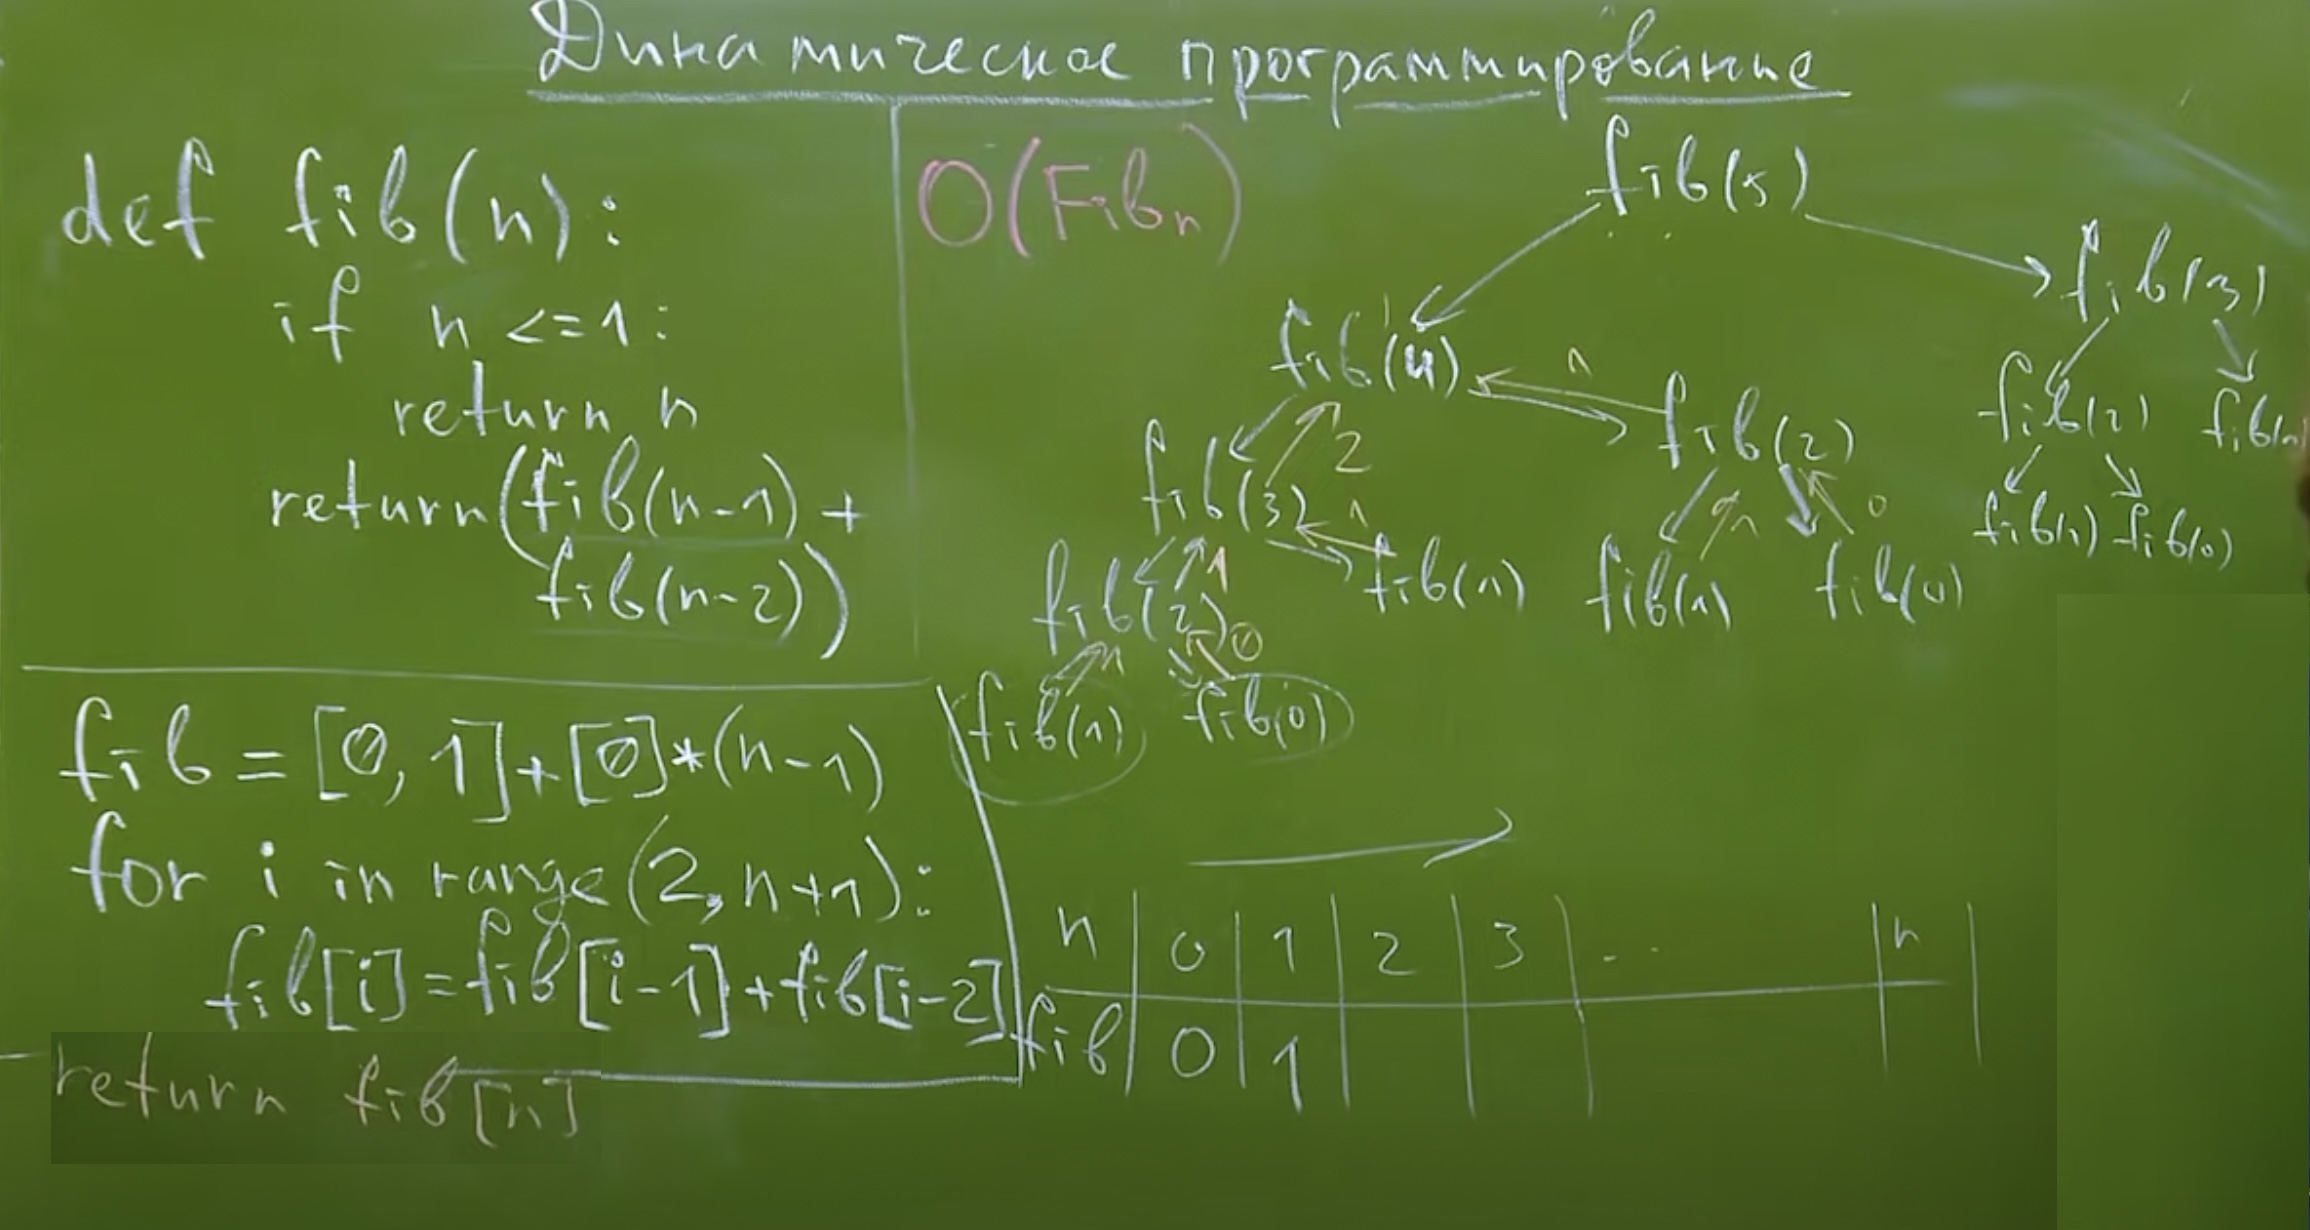 Динамическое программирование
def fib(n):
if n <= 1:
return n
return(fib(n-1) +
fib(n-2))
O(Fibn)
fib(5)
fib(4)
fib(3)
1
2
fib(3)
fib(2)
fib(2)
1
1
1
0
fib(1)
fib(0)
fib(2)
fib(1)
fib(1)
fib(0)
1
0
fib(1)
fib(0)
fib = [0, 1]+[0]*(n-1)
for i in range(2, n+1):
fib[i]=fib[i-1]+fib[i-2]
return fib[n]
n 0 1 2 3 ... n
fib 0 1